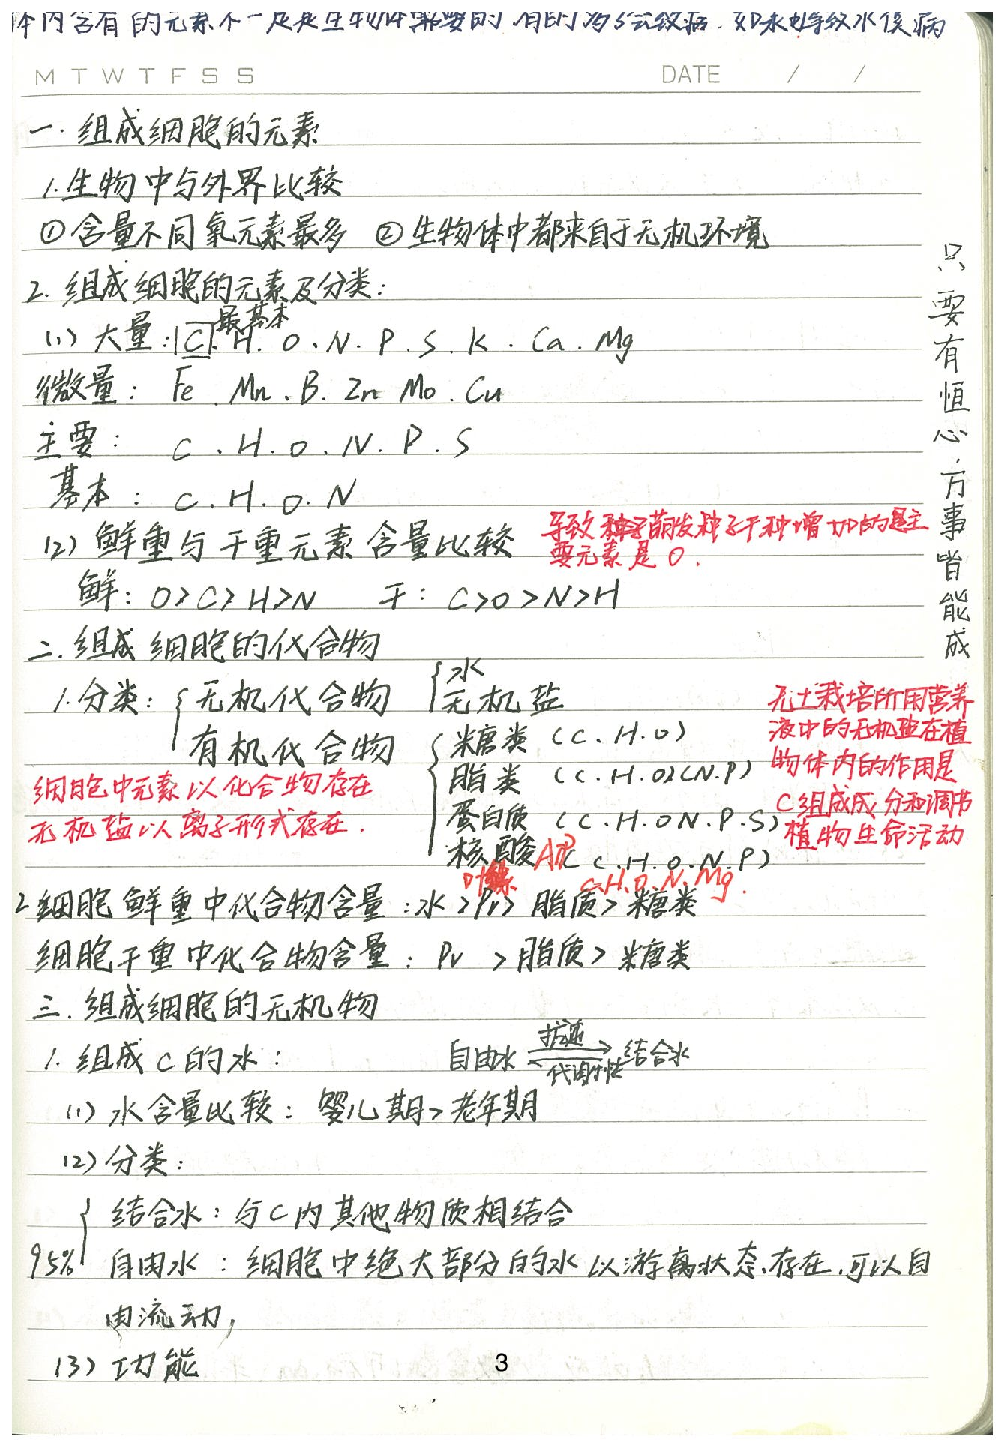 体内含有的元素不一定是生物体需要的 有的 会致病. 如汞 导致水俣病
M T W T F S S DATE / /
一. 组成细胞的元素
1. 生物中与外界比较
① 含量不同氧元素最多 ② 生物体中都来自于无机环境
2. 组成细胞的元素及分类:
最基本
(1) 大量: C. H. O. N. P. S. K. Ca. Mg
微量: Fe. Mn. B. Zn Mo. Cu
主要: C. H. O. N. P. S
基本: C. H. O. N
(2) 鲜重与干重元素含量比较
导致种子萌发种子干种增加的是主
要元素是O.
鲜: O>C>H>N 干: C>O>N>H
二. 组成细胞的化合物
1. 分类: { 无机化合物 { 水
无机盐
有机化合物 { 糖类 (C. H. O)
脂类 (C. H. O)(N. P)
蛋白质 (C. H. O N. P. S)
核酸 (C. H. O. N. P)
ATP
叶绿素 C.H.O.N.Mg.
细胞中元素以化合物存在
无机盐以离子形式存在.
无土栽培所用营养
液中的无机盐在植
物体内的作用是
C组成成分和调节
植物生命活动
2 细胞鲜重中化合物含量: 水>Pr> 脂质>糖类
细胞干重中化合物含量: Pr >脂质> 糖类
三. 组成细胞的无机物
1. 组成C的水: 自由水 ⇌ 结合水
代谢性
(1) 水含量比较: 婴儿期>老年期
(2) 分类:
{ 结合水: 与C内其他物质相结合
95% 自由水: 细胞中绝大部分的水以游离状态.存在.可以自
由流动,
(3) 功能
3
只要有恒心.万事皆能成